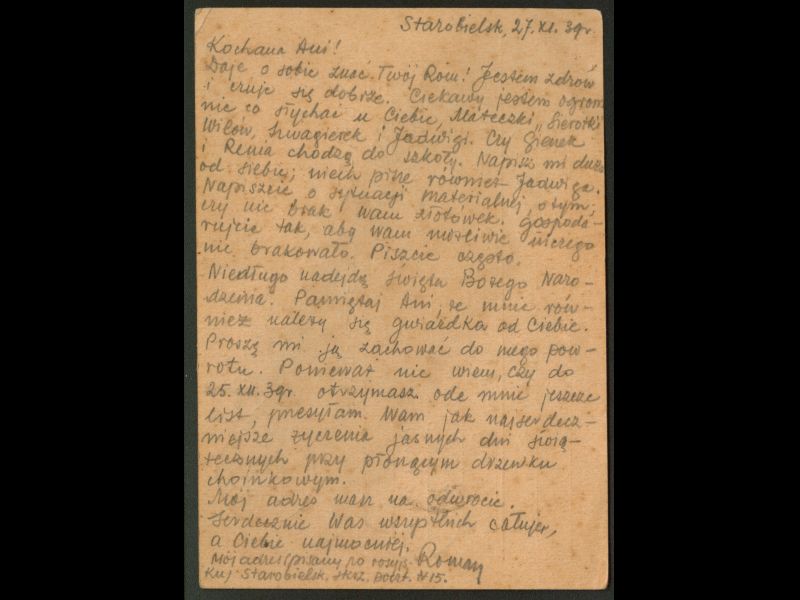 Starobielsk, 27.XI.39r.
Kochana Ani!
Daje o sobie znać Twój Rom! Jestem zdrów
i czuje się dobrze. Ciekawy jestem ogrom
nie co słychać u Ciebie, Mateczki, "Sierotki
Wilów, Szwagierek i Jadwigi. Czy Gienek
i Renia chodzą do szkoły. Napisz mi dużo
od siebie; niech pisze również Jadwiga.
Napiszcie o sytuacji materialnej, o tym,
czy nie brak Wam złotówek. Gospoda-
rujcie tak, aby Wam możliwie niczego
nie brakowało. Piszcie często.
Niedługo nadejdą święta Bożego Naro-
dzenia. Pamiętaj Ani, że mnie rów-
nież należy się gwiazdka od Ciebie.
Proszę mi ją zachować do mego pow-
rotu. Ponieważ nie wiem, czy do
25.XII.39r. otrzymasz ode mnie jeszcze
list, przesyłam Wam jak najserdecz-
niejsze życzenia jasnych dni świą-
tecznych przy płonącym drzewku
choinkowym.
Mój adres masz na odwrocie.
Serdecznie Was wszystkich całuję,
a Ciebie najmocniej.
Roman
Mój adres (pisany po rosyj.
Starobielsk, skrz. poczt. N 15.